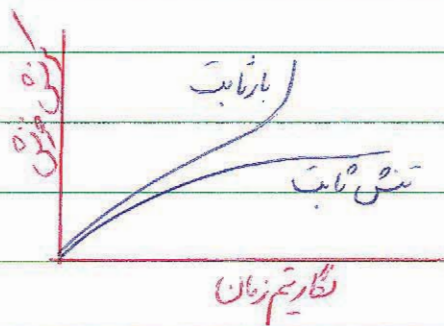 کرنش خزش
بار ثابت
تنش ثابت
لگاریتم زمان